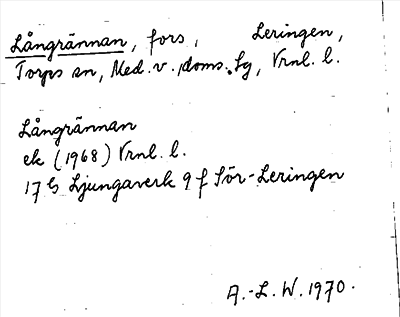 Långrännan, fors, Leringen,
Torps sn, Med. v. doms. Lg, Vrnl. l.
Långrännan
ek (1968) Vrnl. l.
17 G Ljungaverk 9 f Sör-Leringen
A.-L. W. 1970.